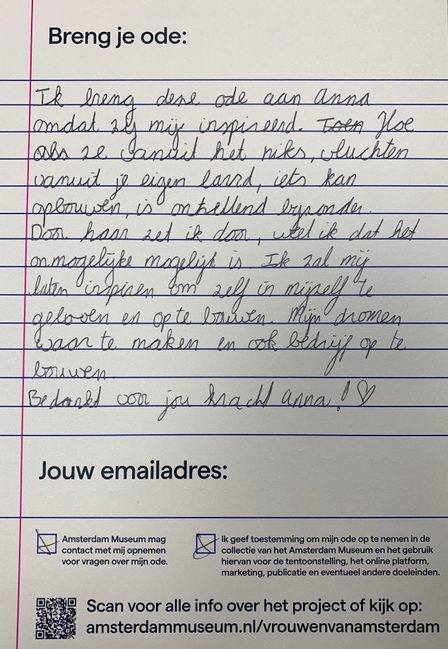 Breng je ode:
Ik breng deze ode aan Anna
omdat zij mij inspireerd. Toen Hoe
als ze vanuit het niks, vluchten
vanuit je eigen land, iets kan
opbouwen, is ontzettend byzonder.
Door haar zet ik door, weet ik dat het
onmogelijke mogelijk is. Ik zal mij
laten inspiren om zelf in mijzelf te
geloven en op te bouwen. Mijn dromen
waar te maken en ook bedrijf op te
bouwen.
Bedankt voor jou kracht Anna! ♡
Jouw emailadres:
Amsterdam Museum mag
contact met mij opnemen
voor vragen over mijn ode.
Ik geef toestemming om mijn ode op te nemen in de
collectie van het Amsterdam Museum en het gebruik
hiervan voor de tentoonstelling, het online platform,
marketing, publicatie en eventueel andere doeleinden.
Scan voor alle info over het project of kijk op:
amsterdammuseum.nl/vrouwenvanamsterdam